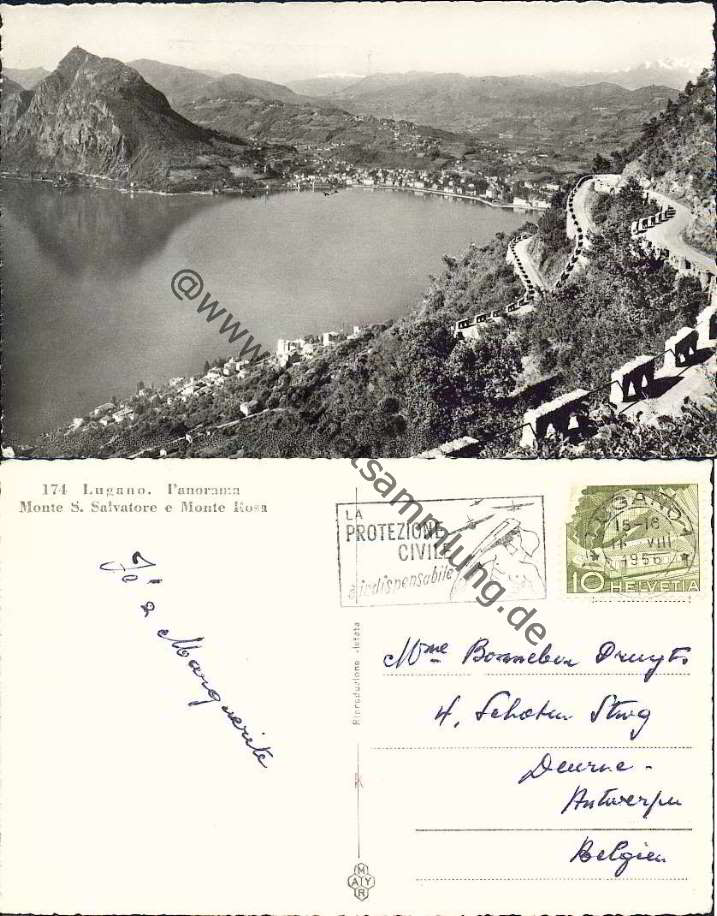 @www. tsammlung.de
174 Lugano. Panorama
Monte S. Salvatore e Monte Rosa
LA
PROTEZIONE
CIVILE
è indispensabile
LUGANO 1
15-16
VIII
1956
10 HELVETIA
Jo & Marguerite
Riproduzione vietata
Mme Bonnebon Druyts
4, Schoten Stwg
Deurne -
Antwerpen
Belgien
M
ATY
R